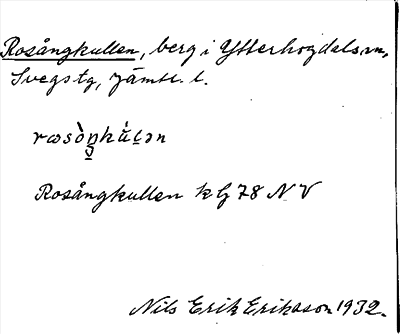 Rosångkullen, berg i Ytterhogdals sn,
Svegs tg, Jämtl. l.
Rosångkullen kg 78 NV
Nils Erik Erikson 1932.